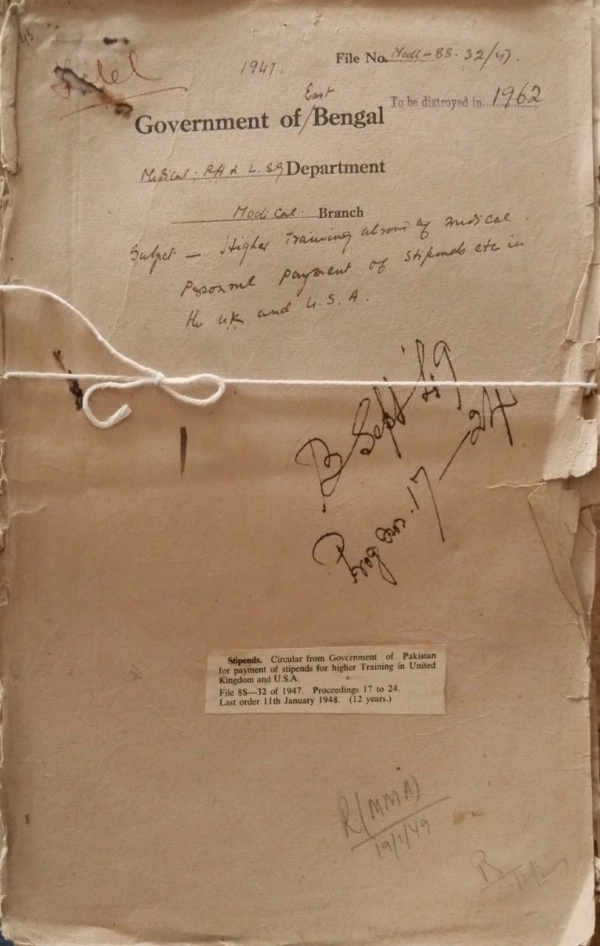 1947.
File No. Medl-8S-32/47.
To be distroyed in 1962
East
Government of / Bengal
Medical, PH & L.SG Department
Medical Branch
Subject — Higher Training abroad of medical
Personnel payment of stipends etc in
the UK and U.S.A.
B Sept 49
Prog nos. 17—24
Stipends. Circular from Government of Pakistan
for payment of stipends for higher Training in United
Kingdom and U.S.A.
File 8S—32 of 1947. Proceedings 17 to 24.
Last order 11th January 1948. (12 years.)
R(MMA)
19/1/49
B